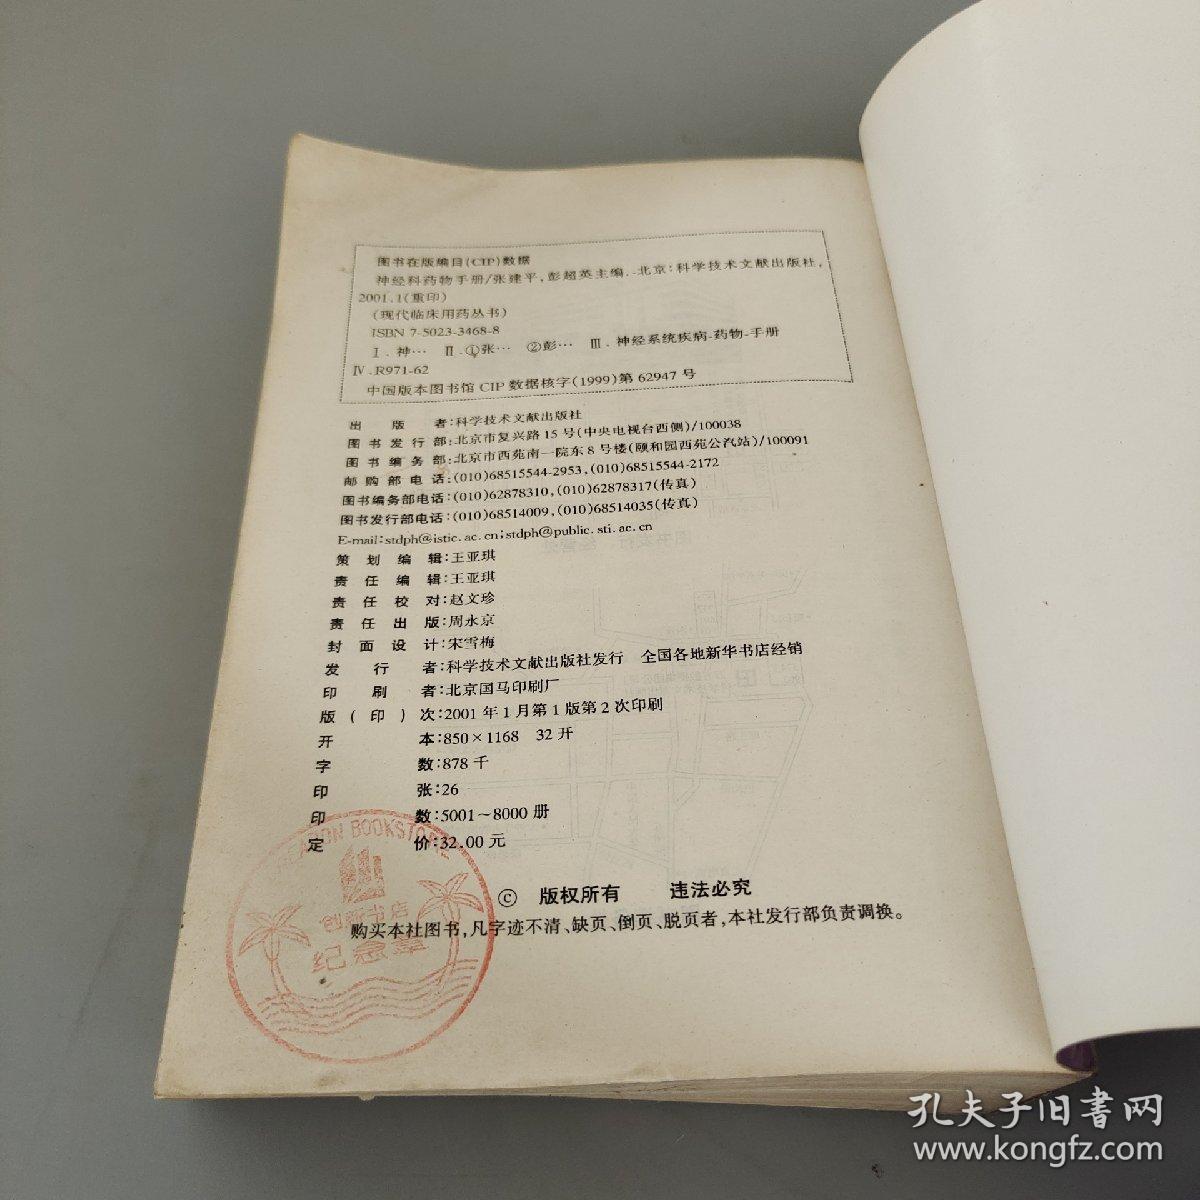 图书在版编目(CIP)数据
神经科药物手册/张建平,彭超英主编.-北京:科学技术文献出版社,
2001.1(重印)
(现代临床用药丛书)
ISBN 7-5023-3468-8
Ⅰ.神… Ⅱ.①张… ②彭… Ⅲ.神经系统疾病-药物-手册
Ⅳ.R971-62
中国版本图书馆CIP数据核字(1999)第62947号
出版者:科学技术文献出版社
图书发行部:北京市复兴路15号(中央电视台西侧)/100038
图书编务部:北京市西苑南一院东8号楼(颐和园西苑公汽站)/100091
邮购部电话:(010)68515544-2953,(010)68515544-2172
图书编务部电话:(010)62878310,(010)62878317(传真)
图书发行部电话:(010)68514009,(010)68514035(传真)
E-mail:stdph@istic.ac.cn;stdph@public.sti.ac.cn
策划编辑:王亚琪
责任编辑:王亚琪
责任校对:赵文珍
责任出版:周永京
封面设计:宋雪梅
发行者:科学技术文献出版社发行 全国各地新华书店经销
印刷者:北京国马印刷厂
版(印)次:2001年1月第1版第2次印刷
开本:850×1168 32开
字数:878千
印张:26
印数:5001~8000册
定价:32.00元
© 版权所有 违法必究
购买本社图书,凡字迹不清、缺页、倒页、脱页者,本社发行部负责调换。
BOOKSTORE
创新书店
纪念章
孔夫子旧书网
www.kongfz.com